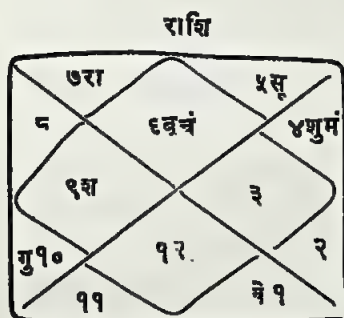 राशि
७रा ५सू
८ ६बुचं ४शुमं
९श ३
गु१० १२ २
११ के१